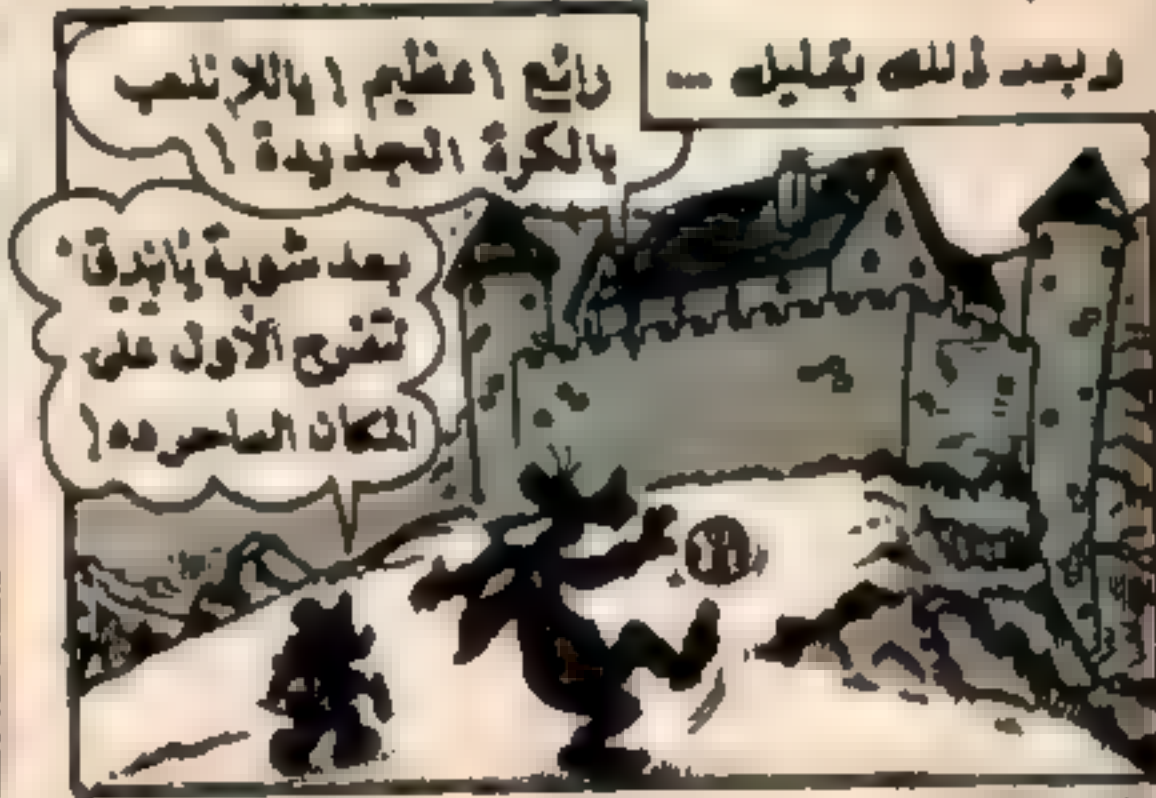 وبعد ذلك بقليل ...
رائع ! عظيم ! ياللا نلعب
بالكرة الجديدة !
بعد شوية يا بندق
نتفرج الأول على
المكان الساحر ده !